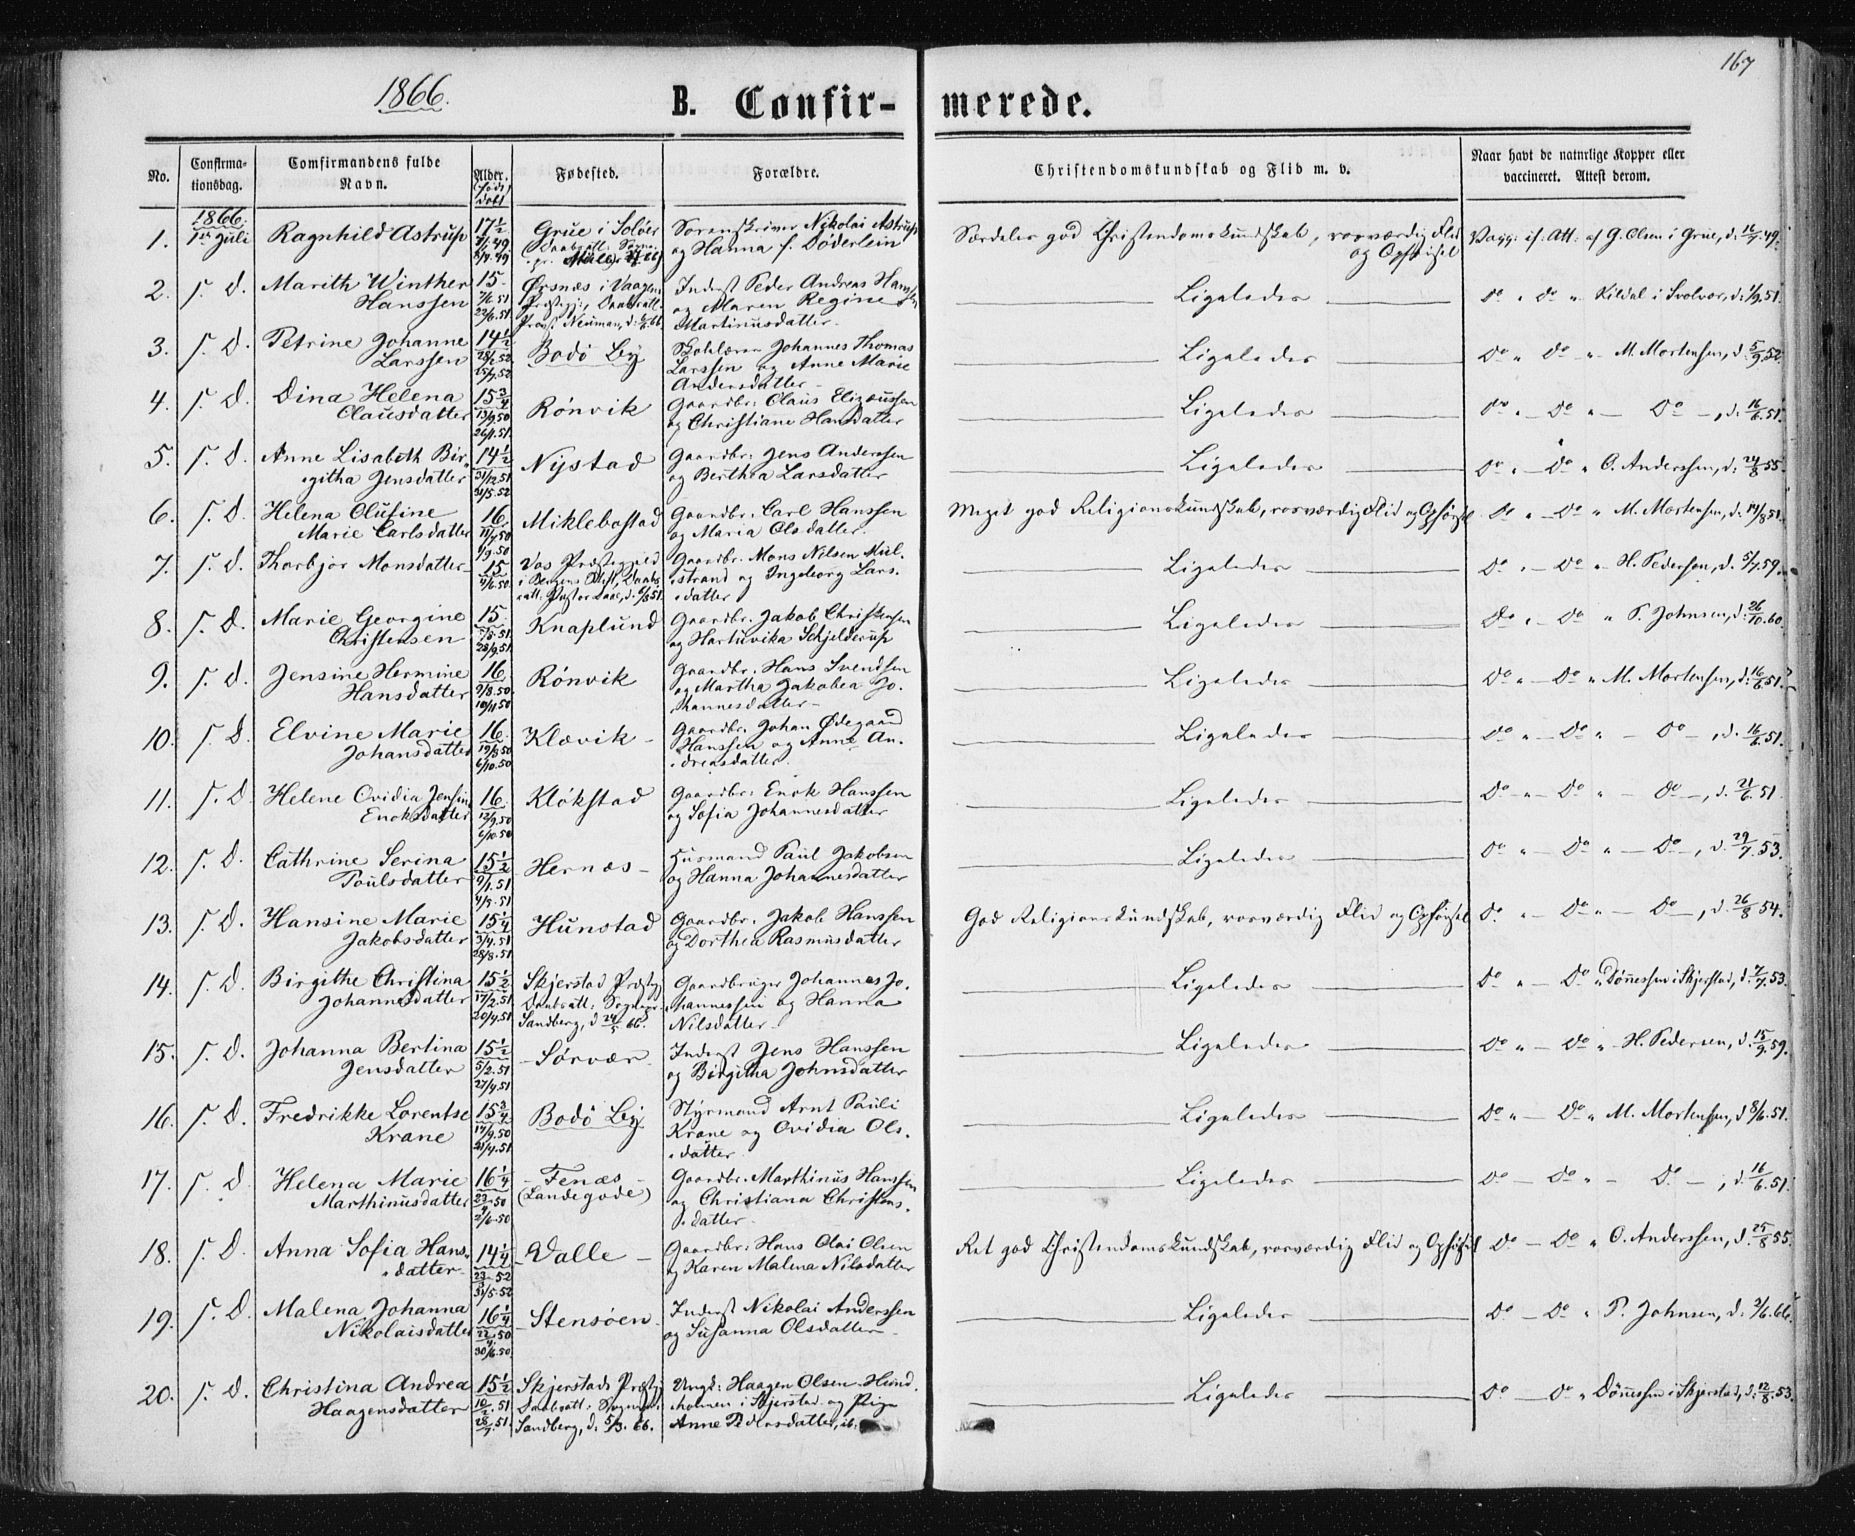 167
1866.
B. Confirmerede.
No.
Confirmationsdag.
Comfirmandens fulde Navn.
Alder. (født døbt)
Fødested.
Forældre.
Christendomskundskab og Flid m. v.
Naar havt de naturlige Kopper eller vaccineret. Attest derom.
1. 1866. 1ste Juli Ragnhild Astrup 17 1/2 Grue i Solöer Sorenskriver Nikolai Astrup og Hanna f. Döderlein Særdeles god Christendomskundskab, rosværdig Flid og Opførsel Vagg: if. Att: af G. Olsen i Grue, d: 16/7.49.
2. s. D. Marith Winther Hanssen 15. 22/6.51 Ørsnæs i Vaagens Præstegj:, Daabsatt. Provst Neuman, Inderst Peder Andreas Hanssen og Maren Regine Martinusdatter. Ligeledes do " do " Kildal i Svolvær, d: 1/9.51.
3. s. D. Petrine Johanne Larssen 14 1/2 28/2.52 25/7.52 Bodö By Johannes Thomas Larssen og Anne Marie Andersdatter. Ligeledes Do " do " M. Mortensen, d. 5/9.52.
4. s. D. Dina Helena Clausdatter 15 3/4 13/9.50 26/1.51. Rönvik Gaardbr: Claus Elizæussen og Christiane Hansdatter Ligeledes do " Do " — Do —, d. 16/6.51.
5. s. D. Anne Lisabeth Birgitha Jensdatter 14 1/2 31/12.51 31/5.52 Nystad Gaardbr: Jens Anderssen og Berthea Larsdatter Ligeledes do " — Do " O. Anderssen, d: 24/8.55.
6. s. D. Helena Olufine Marie Carlsdatter 16. 11/7.50 1/9.50 Miklebostad Gaardbr: Carl Hanssen og Maria Olsdatter. Meget god Religionskundskab, rosværdig Flid og Opførsel do " — Do " M. Mortensen, d: 14/8.51.
7. s. D. Thorbjør Monsdatter 15 Vos Præstegjeld i Bergens Stift, Gaardbr. Mons Nilsen Mulstrand og Ingeborg Larsdatter Ligeledes do " — do " H. Pedersen, d. 5/7.59.
8. s. D. Marie Georgine Christensen 15. 5/5.51. 28/9.51. Knaplund Gaardbr. Jakob Christensen og Hartuvika Schjelderup Ligeledes do " — do " P. Johnsen, d: 26/10.60.
9. s. D. Jensine Hermine Hansdatter 16. 9/8.50. 10/11.50 Rönvik Gaardbr. Hans Svendsen og Martha Jakobea Johannesdatter. Ligeledes do " — Do " M. Mortensen, d: 16/6.51.
10. s. D. Elvine Marie Johansdatter 16. 19/8.50 6/10.50 Klævik Gaardbr. Johan Ødegaard Hanssen og Anne Andreasdatter. Ligeledes do " — Do " — Do —, d. 16/6.51.
11. s. D. Helene Ovidia Jensine Enoksdatter 16. 12/9.50 6/10.50 Klökstad Gaardbr: Enok Hanssen og Sofia Johannesdatter Ligeledes Do " — Do " — do —, d. 21/6.51.
12. s. D. Cathrine Serina Poulsdatter 15 1/2 9/1.51 Hernæs Husmand Paul Jakobsen og Hanna Johannesdatter Ligeledes Do " — Do " — Do —, d. 29/7.53.
13. s. D. Hansine Marie Jakobsdatter 15 1/4 3/4.51 28/8.51 Hunstad Gaardbr. Jakob Hanssen og Dorthea Rasmusdatter God Religionskundskab, rosværdig Flid og Opførsel Do " — Do " — Do —, d. 26/8.54.
14. s. D. Birgithe Christina Johannesdatter 15 1/2 17/2.51 20/4.51 Skjerstad Præstgj Daabsatt: Sognepr. Sandberg, d 24/5 66. Gaardbruger Johannes Johannessen og Hanna Nilsdatter Ligeledes Do " — Do " Dönnessen i Skjerstad, d. 7/7.53.
15. s. D. Johanna Bertina Jensdatter 15 1/2 5/2.51 27/4.51 Sörvær Inderst Jens Hanssen og Birgitha Johnsdatter Ligeledes Do " — Do " H. Pedersen, d. 15/9.59.
16. s. D. Fredrikke Lorentse Krane 15 3/4 21/4.51 Bodö By Styrmand Arnt Pauli Krane og Ovidia Olsdatter. Ligeledes Do " — Do " M. Mortensen, d 8/6.51.
17. s. D. Helena Marie Marthinusdatter 16 1/4 23/4.50 2/6.50 Fenæs (Landegode) Gaardbr. Marthinus Hanssen og Christiana Christensdatter Ligeledes Do — do " — Do —, d. 16/6.51.
18. s. D. Anna Sofia Hansdatter 14 1/4 31/5.52 Valle Gaardbr: Hans Olai Olsen og Karen Malena Nilsdatter Ret god Christendomskundskab, rosværdig Flid og Opførsel Do — Do " O. Anderssen, d. 25/8.55.
19. s. D. Malena Johanna Nikolaisdatter 16 1/4 22/4.50 30/6.50. Stensöen Inderst Nikolai Anderssen og Susanna Olsdatter Ligeledes Do — Do " P. Johnsen, d: 2/6.66.
20. s. D. Christina Andrea Haagensdatter 15 1/2 10/2.51 Skjerstads Præstgj Daabsatt: Sognepr. Sandberg, d. 5/3. 66. Ungk: Haagen Olsen Hundholmen i Skjerstad og Pige Anne Pedersdatter, ib. Ligeledes Do — do " Dönnessen i Skjerstad, d: 12/8.53.